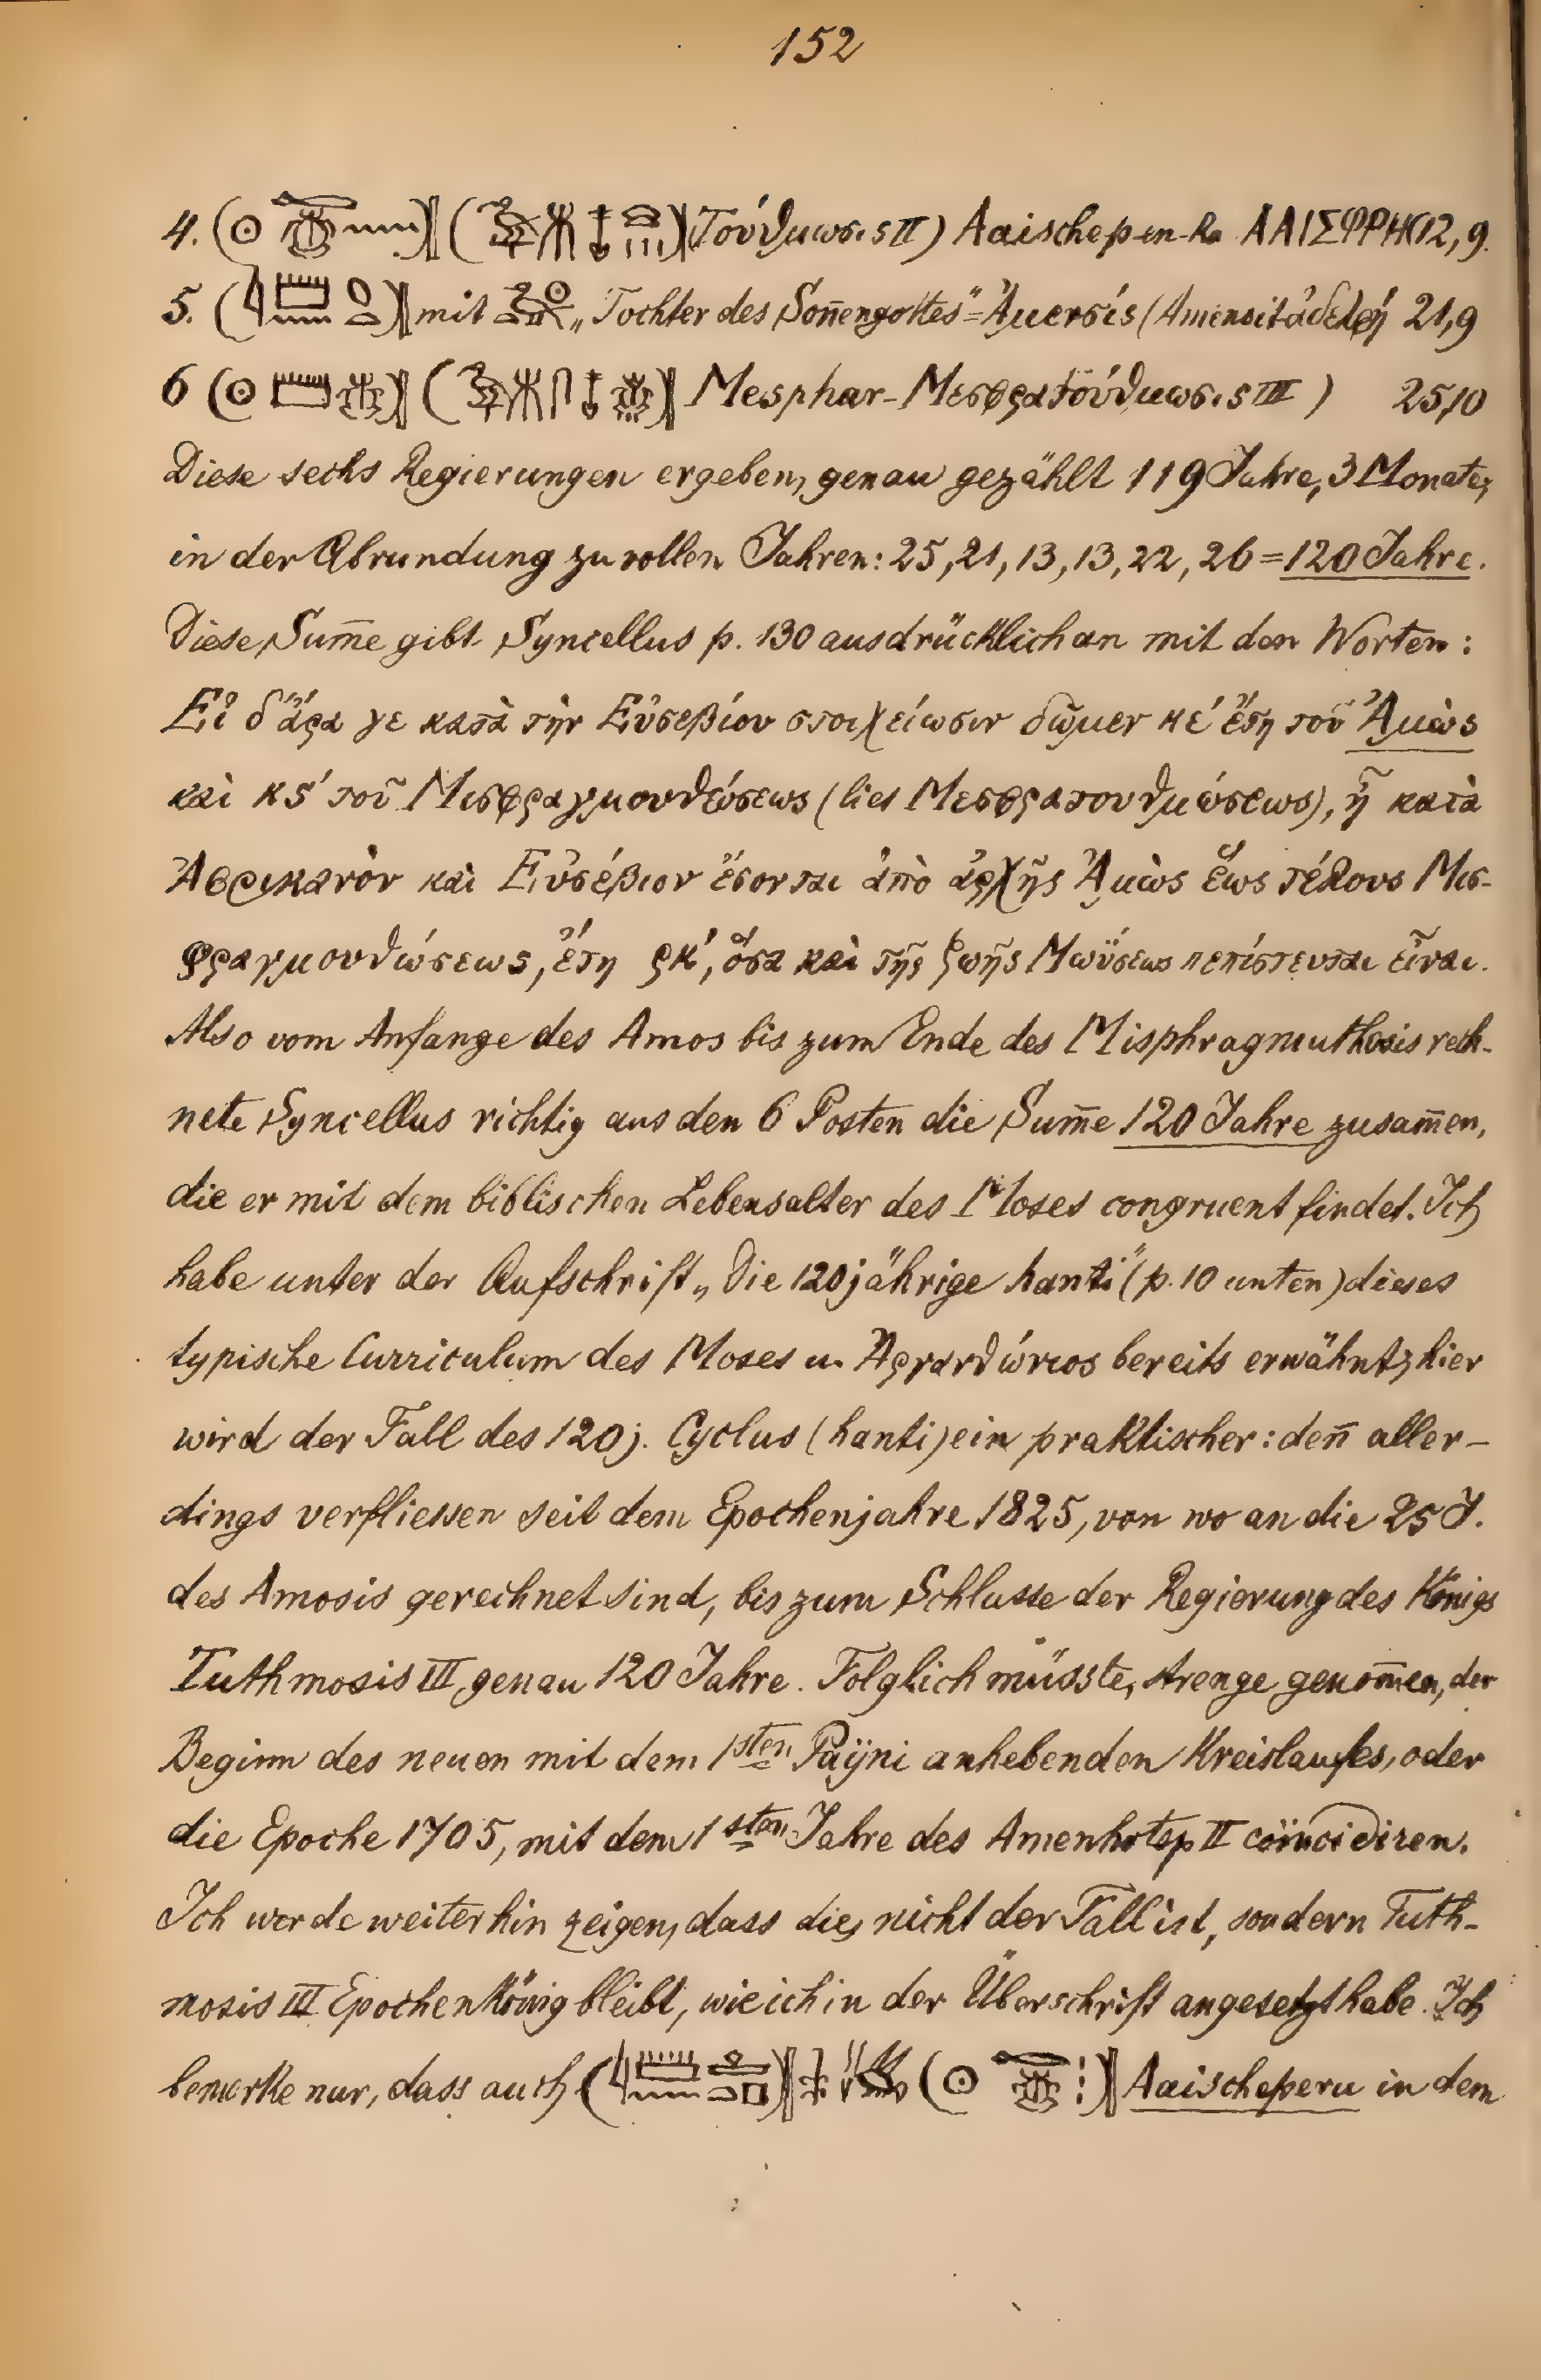 152
4. Τούθμωσις II) Aaischep-en-Ra ΑΑΙΣΦΡΗΚ 12, 9.
5. mit „Tochter des Son̅engottes“ = Ἀμενσίς (Amensit ἀδελφή 21,9
6 Mesphar-Μεσφρατούθμωσις III) 25,10
Diese sechs Regierungen ergeben, genau gezählt 119 Jahre, 3 Monate,
in der Abrundung zu vollen Jahren: 25, 21, 13, 13, 22, 26 = 120 Jahre.
Diese Sum̅e gibt Syncellus p. 130 ausdrücklich an mit den Worten:
Εἰ δ’ ἄρα γε κατὰ τὴν Εὐσεβίου στοιχείωσιν δῶμεν κέ ἔτη τοῦ Ἀμὼς
καὶ κς΄ τοῦ Μισφραγμουθώσεως (lies Μεσφρατουθμώσεως), ἢ κατὰ
Ἀφρικανὸν καὶ Εὐσέβιον ἔσονται ἀπὸ ἀρχῆς Ἀμὼς ἕως τέλους Μισ-
φραγμουθώσεως, ἔτη ρκ΄, ὅσα καὶ τῆς ζωῆς Μωϋσέως πεπίστευται εἶναι.
Also vom Anfange des Amos bis zum Ende des Misphragmuthosis rech-
nete Syncellus richtig aus den 6 Posten die Sum̅e 120 Jahre zusam̅en,
die er mit dem biblischen Lebensalter des Moses congruent findet. Ich
habe unter der Aufschrift „Die 120jährige hanti“ (p. 10 unten) dieses
typische Curriculum des Moses u. Ἀργανθώνιος bereits erwähnt; hier
wird der Fall des 120j. Cyclus (hanti) ein praktischer: den̅ aller-
dings verfliessen seit dem Epochenjahre 1825, von wo an die 25 J.
des Amosis gerechnet sind, bis zum Schlusse der Regierung des Königs
Tuthmosis III genau 120 Jahre. Folglich müsste, strenge genom̅en, der
Beginn des neuen mit dem 1sten Payni anhebenden Kreislaufes, oder
die Epoche 1705, mit dem 1sten Jahre des Amenhotep II coïncidiren.
Ich werde weiterhin zeigen, dass dies nicht der Fall ist, sondern Tuth-
mosis III Epochenkönig bleibt, wie ich in der Überschrift angesetzt habe. Ich
bemerke nur, dass auch Aaischeperu in dem